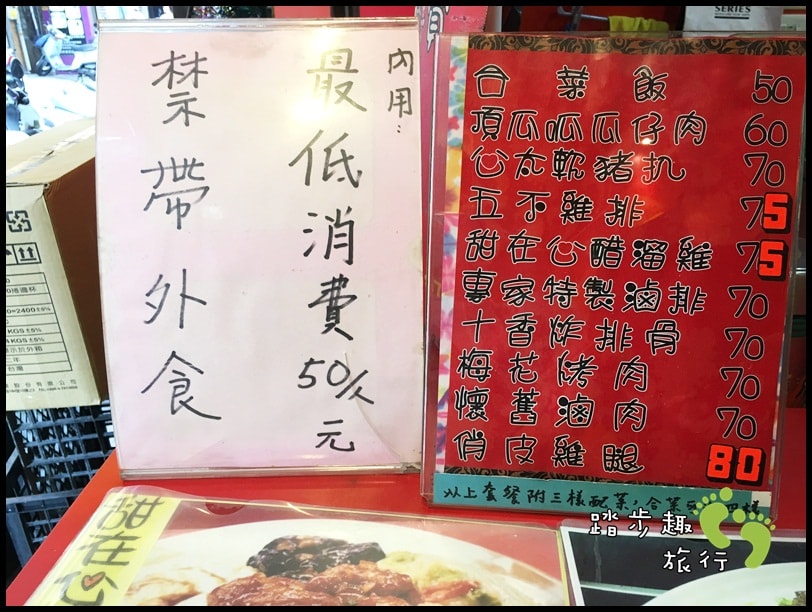 內用:
最低消費50/人元
禁帶外食
合菜飯 50
頂瓜呱瓜仔肉 60
心太軟豬扒 70
五不雞排 75
甜在心醋溜雞 75
專家特製滷排 70
十香炸排骨 70
梅花烤肉 70
懷舊滷肉 70
俏皮雞腿 80
以上套餐附三樣配菜,合菜
甜在心
SERIES
踏步趣
旅行